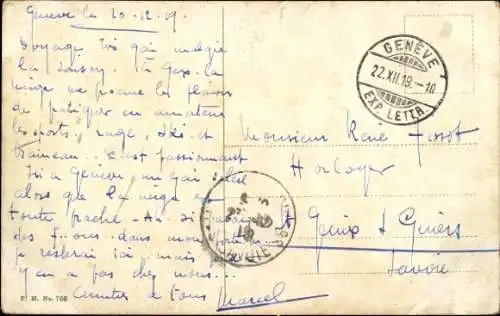 Genève le 20.12.19.
Voyage très gai malgré
la saison. À Gex la
neige me donne les plaisirs
de pratiquer en amateur
les sports. Luge, ski et
traineau.. c'est passionnant
Ici a Genève un gai soleil
alors que la neige est
toute fraiche - Ah si j'avais
des dans mon
je resterai ici, mais
y en a pas chez nous...
Amitiés a tous Marcel
GENÈVE 1
22.XII.19.-10
EXP. LETTR.
Monsieur René Tissot
Horloger
à Génix s/ Guiers
Savoie
SAVOIE
P. M. No. 766